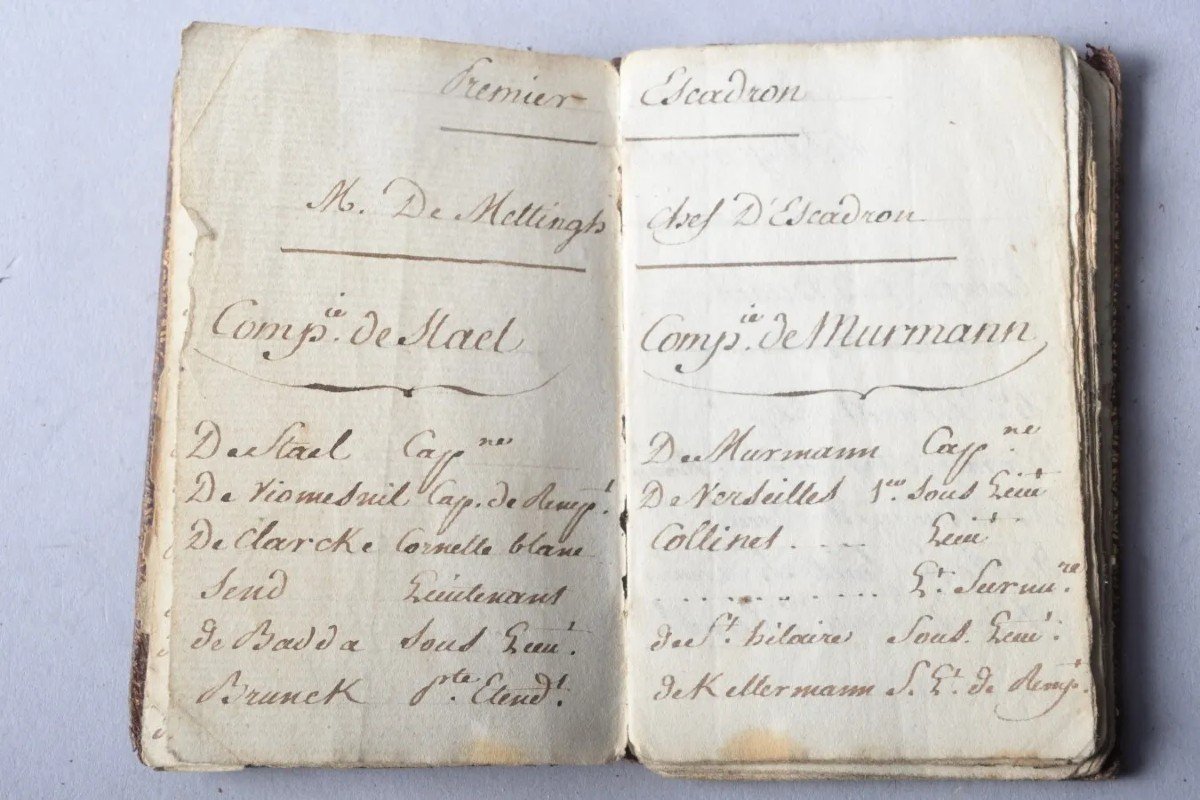 Premier
M. De Mettingh
Comp.ie de Stael
De Stael Cap.ne
De Viomesnil Cap. de Remp.t
De Clarcke Cornette blanc
Send Lieutenant
de Badda sous Lieu.t
Brunck P.rte Etend.t
Escadron
chef D'Escadron
Comp.ie de Murmann
De Murmann Cap.ne
De Verseilles 1.er sous Lieu.t
Collinet .... Lieu.t
............ L.t Surnu.re
de S.t hilaire Sous. Lieu.t
de Kellermann S. L.t de Remp.t